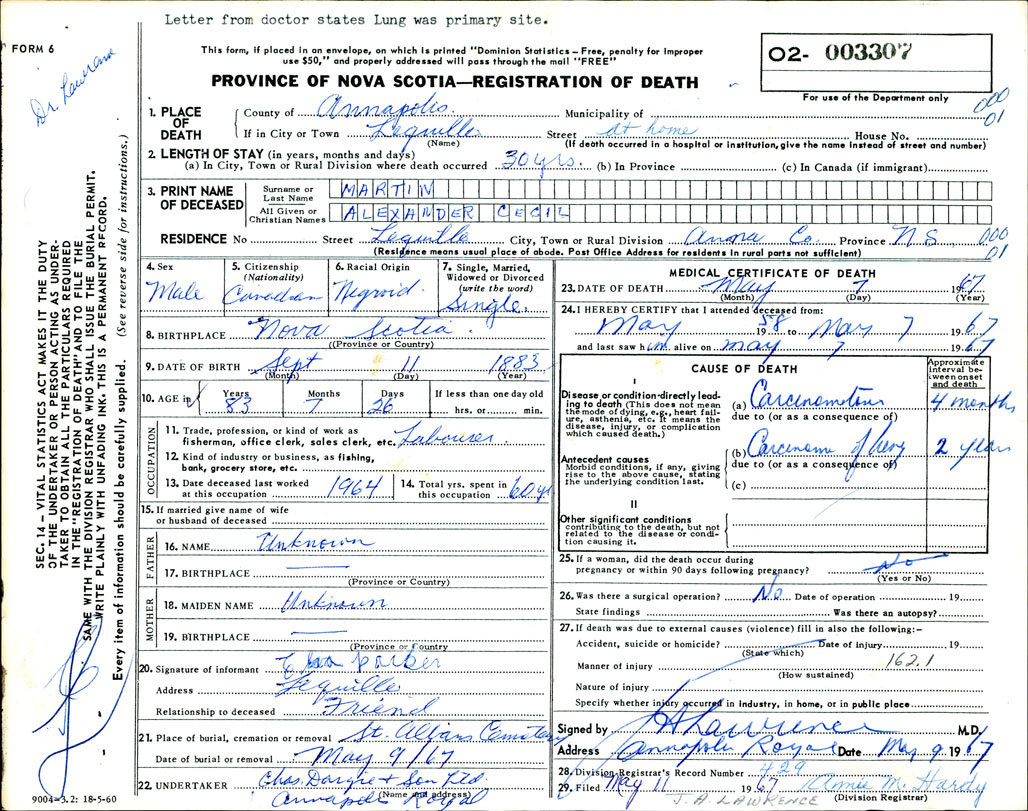 Letter from doctor states Lung was primary site.
FORM 6
Dr. Lawrence
This form, if placed in an envelope, on which is printed "Dominion Statistics – Free, penalty for improper
use $50," and properly addressed will pass through the mail "FREE"
O2- 003307
PROVINCE OF NOVA SCOTIA—REGISTRATION OF DEATH
For use of the Department only
000
01
1. PLACE OF DEATH
County of Annapolis. Municipality of
If in City or Town Lequille Street at home House No.
(Name) (If death occurred in a hospital or institution, give the name instead of street and number)
2. LENGTH OF STAY (in years, months and days)
(a) In City, Town or Rural Division where death occurred 30 yrs. (b) In Province (c) In Canada (if immigrant)
3. PRINT NAME OF DECEASED
Surname or Last Name MARTIN
All Given or Christian Names ALEXANDER CECIL
RESIDENCE No Street Lequille City, Town or Rural Division Anna Co. Province N S. 000
01
(Residence means usual place of abode. Post Office Address for residents in rural parts not sufficient)
4. Sex
Male
5. Citizenship
(Nationality)
Canadian
6. Racial Origin
Negroid.
7. Single, Married,
Widowed or Divorced
(write the word)
Single.
8. BIRTHPLACE Nova Scotia.
(Province or Country)
9. DATE OF BIRTH Sept 11 1883
(Month) (Day) (Year)
10. AGE in Years Months Days If less than one day old
83 7 26 hrs. or min.
OCCUPATION
11. Trade, profession, or kind of work as
fisherman, office clerk, sales clerk, etc. Labourer.
12. Kind of industry or business, as fishing,
bank, grocery store, etc.
13. Date deceased last worked
at this occupation 1964
14. Total yrs. spent in
this occupation 60 yr
15. If married give name of wife
or husband of deceased
FATHER
16. NAME Unknown
17. BIRTHPLACE —
(Province or Country)
MOTHER
18. MAIDEN NAME Unknown
19. BIRTHPLACE —
(Province or Country)
20. Signature of informant Parker
Address Lequille
Relationship to deceased Friend
21. Place of burial, cremation or removal St. Albans Cemetary
Date of burial or removal May 9/67
22. UNDERTAKER Chas. Dargie + Son Ltd.
(Name and address)
Annapolis Royal
MEDICAL CERTIFICATE OF DEATH
23. DATE OF DEATH May 7 1967
(Month) (Day) (Year)
24. I HEREBY CERTIFY that I attended deceased from:
May 1958 to May 7 1967
and last saw him alive on May 7 1967
CAUSE OF DEATH
Approximate
interval be-
tween onset
and death
I
Disease or condition directly lead-
ing to death (This does not mean
the mode of dying, e.g., heart fail-
ure, asthenia, etc. It means the
disease, injury, or complication
which caused death.)
(a) Carcinomatous 4 months
due to (or as a consequence of)
Antecedent causes
Morbid conditions, if any, giving
rise to the above cause, stating
the underlying condition last.
(b) Carcinoma of lung 2 years
due to (or as a consequence of)
(c)
II
Other significant conditions
contributing to the death, but not
related to the disease or condi-
tion causing it.
25. If a woman, did the death occur during
pregnancy or within 90 days following pregnancy? No
(Yes or No)
26. Was there a surgical operation? No Date of operation 19
State findings Was there an autopsy?
27. If death was due to external causes (violence) fill in also the following:–
Accident, suicide or homicide? Date of injury 19
(State which)
Manner of injury 162.1
(How sustained)
Nature of injury
Specify whether injury occurred in industry, in home, or in public place
Signed by J A Lawrence M.D.
Address Annapolis Royal Date May 9 1967
28. Division Registrar's Record Number 429
29. Filed May 11 1967 Amie M. Hardy
J. A. LAWRENCE (Division Registrar)
SEC. 14 – VITAL STATISTICS ACT MAKES IT THE DUTY
OF THE UNDERTAKER OR PERSON ACTING AS UNDER-
TAKER TO OBTAIN ALL THE PARTICULARS REQUIRED
IN THE "REGISTRATION OF DEATH" AND TO FILE THE
SAME WITH THE DIVISION REGISTRAR WHO SHALL ISSUE THE BURIAL PERMIT.
WRITE PLAINLY WITH UNFADING INK. THIS IS A PERMANENT RECORD.
Every item of information should be carefully supplied. (See reverse side for instructions.)
9004–3.2: 18-5-60